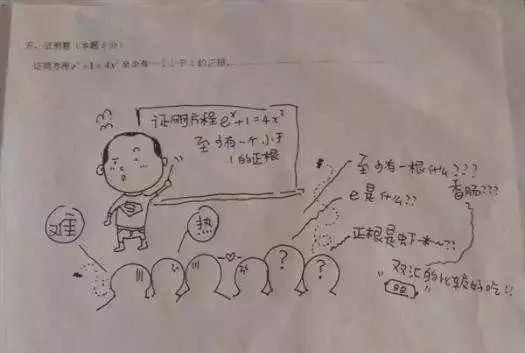 五、证明题（本题8分）
证明方程eˣ+1=4x²至少有一个小于1的正根。
证明方程eˣ+1=4x²
至少有一个小于
1的正根
至少有一根什么???
香肠???
e是什么??
正根是虾米~??
难
热
? ?
"双汇的比较好吃!!"